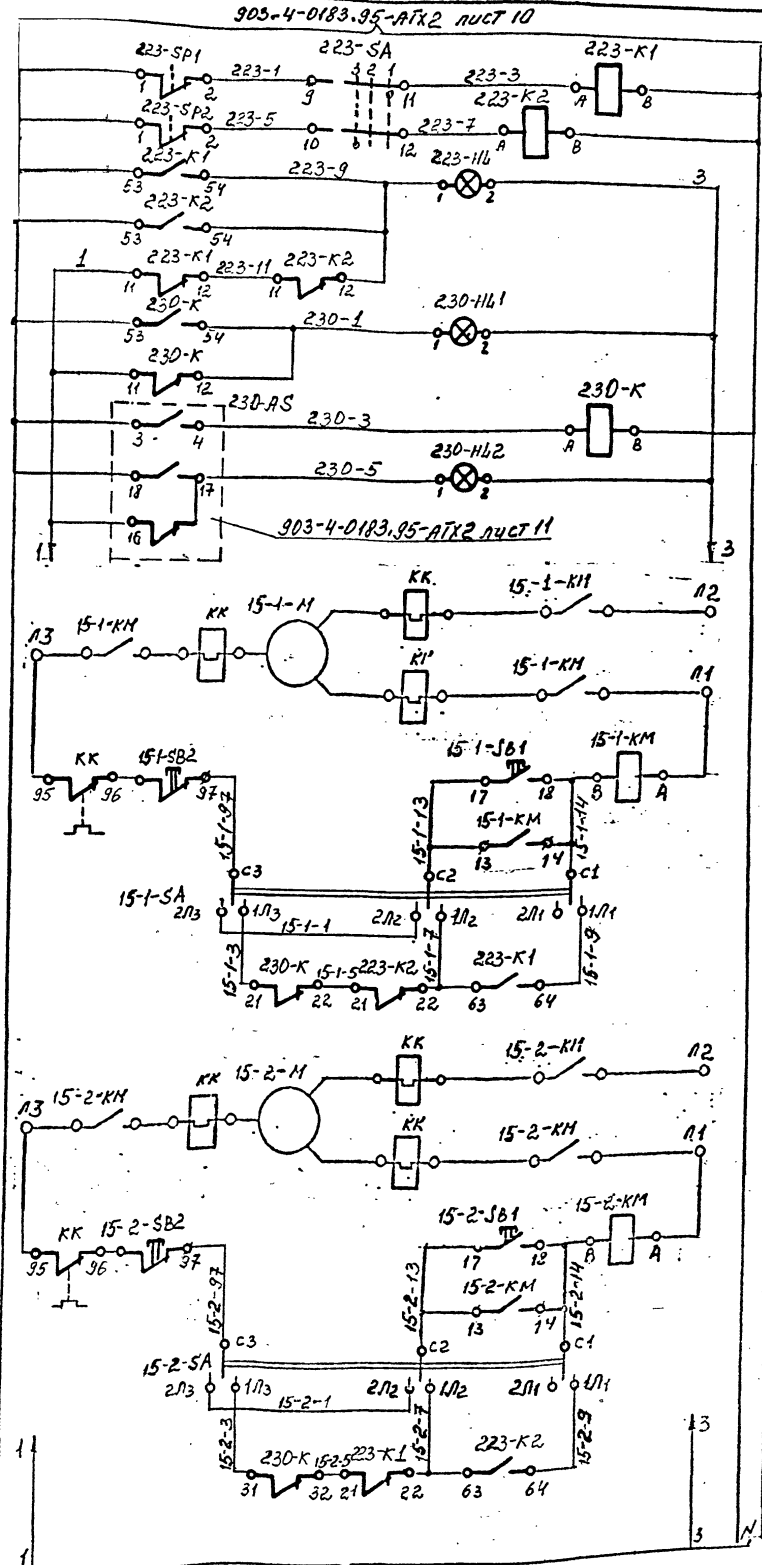 903-4-0183.95-АТХ2 лист 10
223-SP1 223-SA 223-K1
1 2 223-1 9 3 2 1 11 223-3 A B
223-SP2 223-K2
1 2 223-5 10 12 223-7 A B
223-K1 223-HL
53 54 223-9 1 2 3
223-K2
53 54
1 223-K1 223-11 223-K2
11 12 11 12
230-K 230-HL1
53 54 230-1 1 2
230-K
11 12
230-AS 230-K
3 4 230-3 A B
230-HL2
18 17 230-5 1 2
16
903-4-0183.95-АТХ2 лист 11
1 3
КК 15-1-КМ Л2
Л3 15-1-КМ КК 15-1-М
КК 15-1-КМ Л1
КК 15-1-SB2 15-1-SB1 15-1-КМ
95 96 97 17 18 B A
15-1-97 15-1-13 15-1-КМ 15-1-14
13 14
С3 С2 С1
15-1-SA
2Л3 1Л3 15-1-1 2Л2 1Л2 2Л1 1Л1
15-1-3 230-K 15-1-5 223-K2 15-1-7 223-K1 15-1-9
21 22 21 22 63 64
КК 15-2-КМ Л2
Л3 15-2-КМ КК 15-2-М
КК 15-2-КМ Л1
КК 15-2-SB2 15-2-SB1 15-2-КМ
95 96 97 17 18 B A
15-2-97 15-2-13 15-2-КМ 15-2-14
13 14
С3 С2 С1
15-2-SA
2Л3 1Л3 15-2-1 2Л2 1Л2 2Л1 1Л1
15-2-3 230-K 15-2-5 223-K1 15-2-7 223-K2 15-2-9
31 32 21 22 63 64
1 3
1 3 N